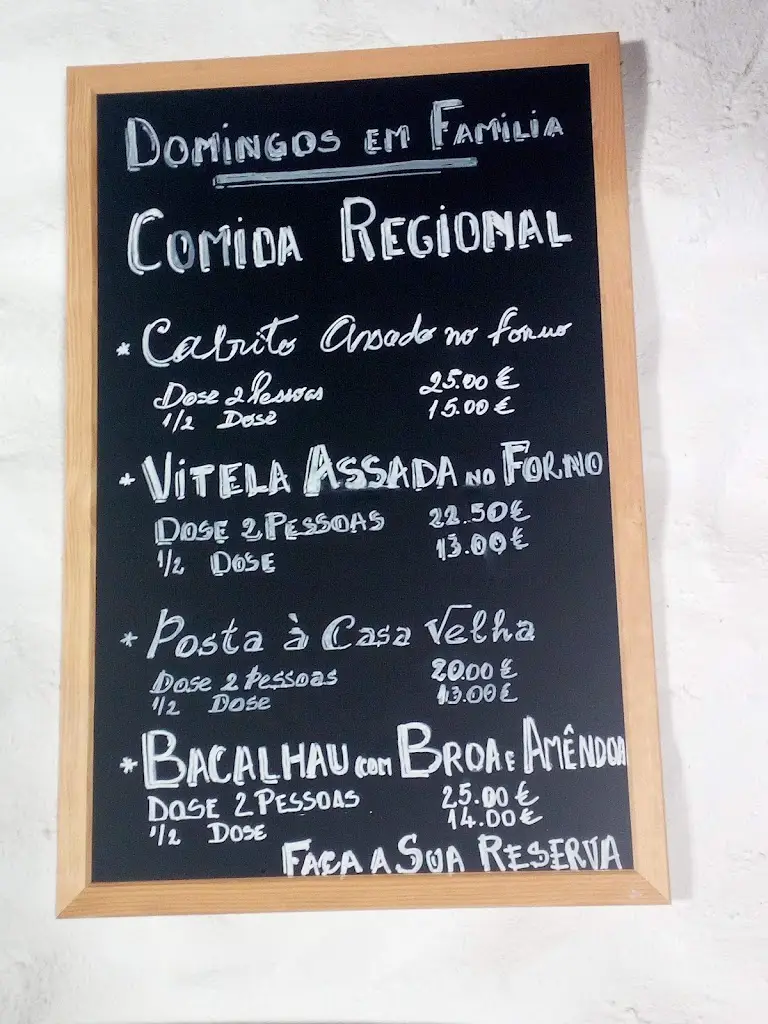 DOMINGOS EM FAMILIA
COMIDA REGIONAL
* Cabrito Assado no forno
Dose 2 Pessoas 25.00 €
1/2 Dose 15.00 €
* VITELA ASSADA NO FORNO
DOSE 2 PESSOAS 22.50 €
1/2 DOSE 13.00 €
* Posta à Casa Velha
Dose 2 Pessoas 20.00 €
1/2 Dose 13.00 €
* BACALHAU COM BROA E AMÊNDOA
DOSE 2 PESSOAS 25.00 €
1/2 DOSE 14.00 €
FAÇA A SUA RESERVA